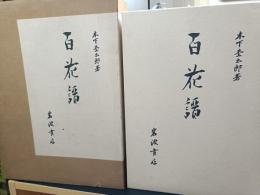 木下杢太郎著
百花譜
岩波書店
木下杢太郎著
百花譜
岩波書店